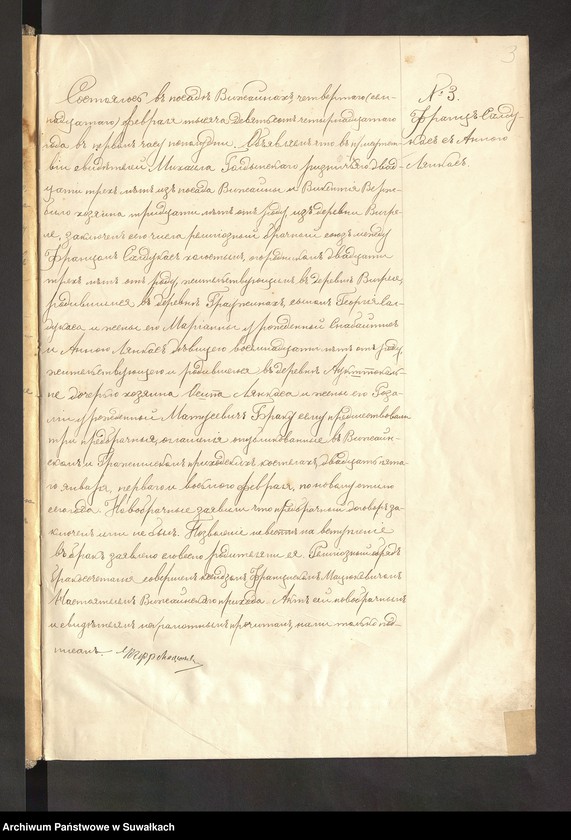 3
№ 3.
Францъ Салду-
каес с Анною
Лянкаес.
Состоялось въ посадѣ Вижайнахъ, четвертаго (сем-
надцатаго) февраля тысяча девятьсотъ четырнадцатаго
года въ первомъ часу пополудни. Объявляемъ что въ присутст-
віи свидѣтелей Михаила двад-
цати трехъ лѣтъ изъ посада Вижайны и Викентія
хозяина тридцати лѣтъ отъ роду изъ деревни
заключенъ сего числа религіозный брачный союзъ между
Францомъ Салдукаес холостымъ, двадцати
трехъ лѣтъ отъ роду, жительствующимъ въ деревнѣ
родившимся въ деревнѣ сыномъ Георгія Сал-
дукаеса и жены его Маріанны урожденной
и Анною Лянкаес дѣвицею восемнадцати лѣтъ отъ роду,
жительствующею и родившеюся въ деревнѣ
дочерью хозяина Осипа Лянкаеса и жены его Роза-
ліи урожденной Матусевичъ. Браку сему предшествовали
три предбрачныя оглашенія опубликованные въ Вижайн-
скомъ и приходскихъ костелахъ, двадцать пята-
го января, перваго и восьмого февраля, по новому стилю
сего года. Новобрачные заявили что предбрачный договоръ за-
ключенъ ими не былъ. Позволеніе невѣстѣ на вступленіе
въ бракъ заявлено словесно родителями ея. Религіозный обрядъ
бракосочетанія совершенъ ксендзомъ Францискомъ Мацюкевичемъ
Настоятелемъ Вижайнскаго прихода. Актъ сей новобрачнымъ
и свидѣтелямъ неграмотнымъ прочитанъ, нами только под-
писанъ.
Archiwum Państwowe w Suwałkach